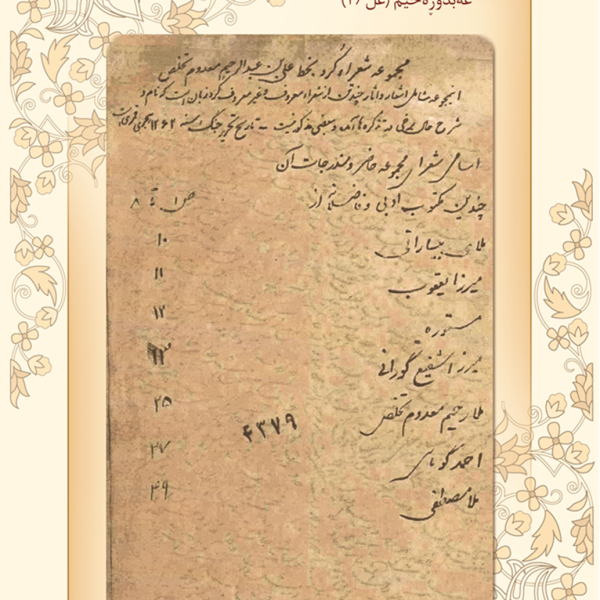 عەبدوڕەحیم (عل ٢٦)
مجموعه شعراء کُرد بخط علی بن عبدالرحیم معدوم تخلص
این مجموعه شامل اشعار و آثار چند تن از شعراء معروف و غیر معروف کرد زبان است که نام و
شرح حال برخی در تذکره‌ها آمده و بعضی مذکور نیست - تاریخ تحریر جنگ سنه ۱۲۶۲ هجری قمری است
اسامی شعرای مجموعه حاضر و مندرجات آن
چندین مکتوب ادبی و فاضلانه از ص ۱ تا ۸
ملای بیسارانی ۱۰
میرزا یعقوب ۱۱
مستوره ۱۲
میرزا شفیع گورانی ۱۳
ملا رحیم معدوم تخلص ۲۵
۴۳۷۹
احمد کوماسی ۲۷
ملا مصطفی ۴۹